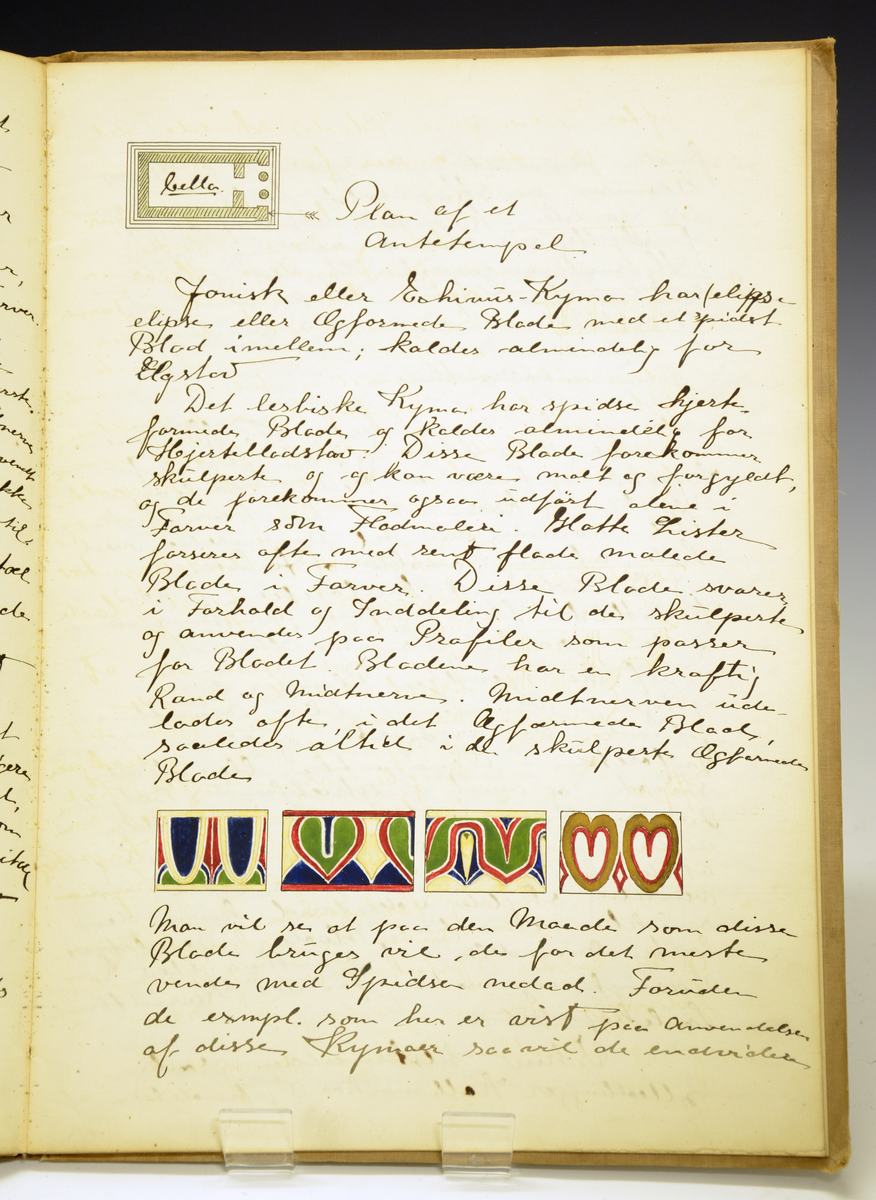 Cella.
Plan af et
Antetempel
Jonisk eller Echinus-Kyma har (elipse
elipse eller Ægformede Blade med et spidst
Blad imellem; kaldes almindelig for
Ægstav
Det lesbiske Kyma har spidse hjerte-
formede Blade og kaldes almindelig for
Hjertebladstav. Disse Blade forekommer
skulperte og og kan være malt og forgyldt,
og de forekommer ogsaa udført alene i
Farver som Fladmaleri. Glatte Lister
forseres ofte med rent flade malede
Blade i Farver. Disse Blade svarer
i Forhold og Inddeling til de skulperte
og anvendes paa Profiler som passer
for Bladet. Bladene har en kraftig
Rand og Midtnerve. Midtnerven ude-
lades ofte i det Ægformede Blad,
saaledes altid i de skulperte Ægformede
Blade
Man vil se at paa den Maade som disse
Blade bruges vil de for det meste
vendes med Spidsen nedad. Foruden
de exmpl. som her er vist paa Anvendelsen
af disse Kymaer saa vil de endvidere